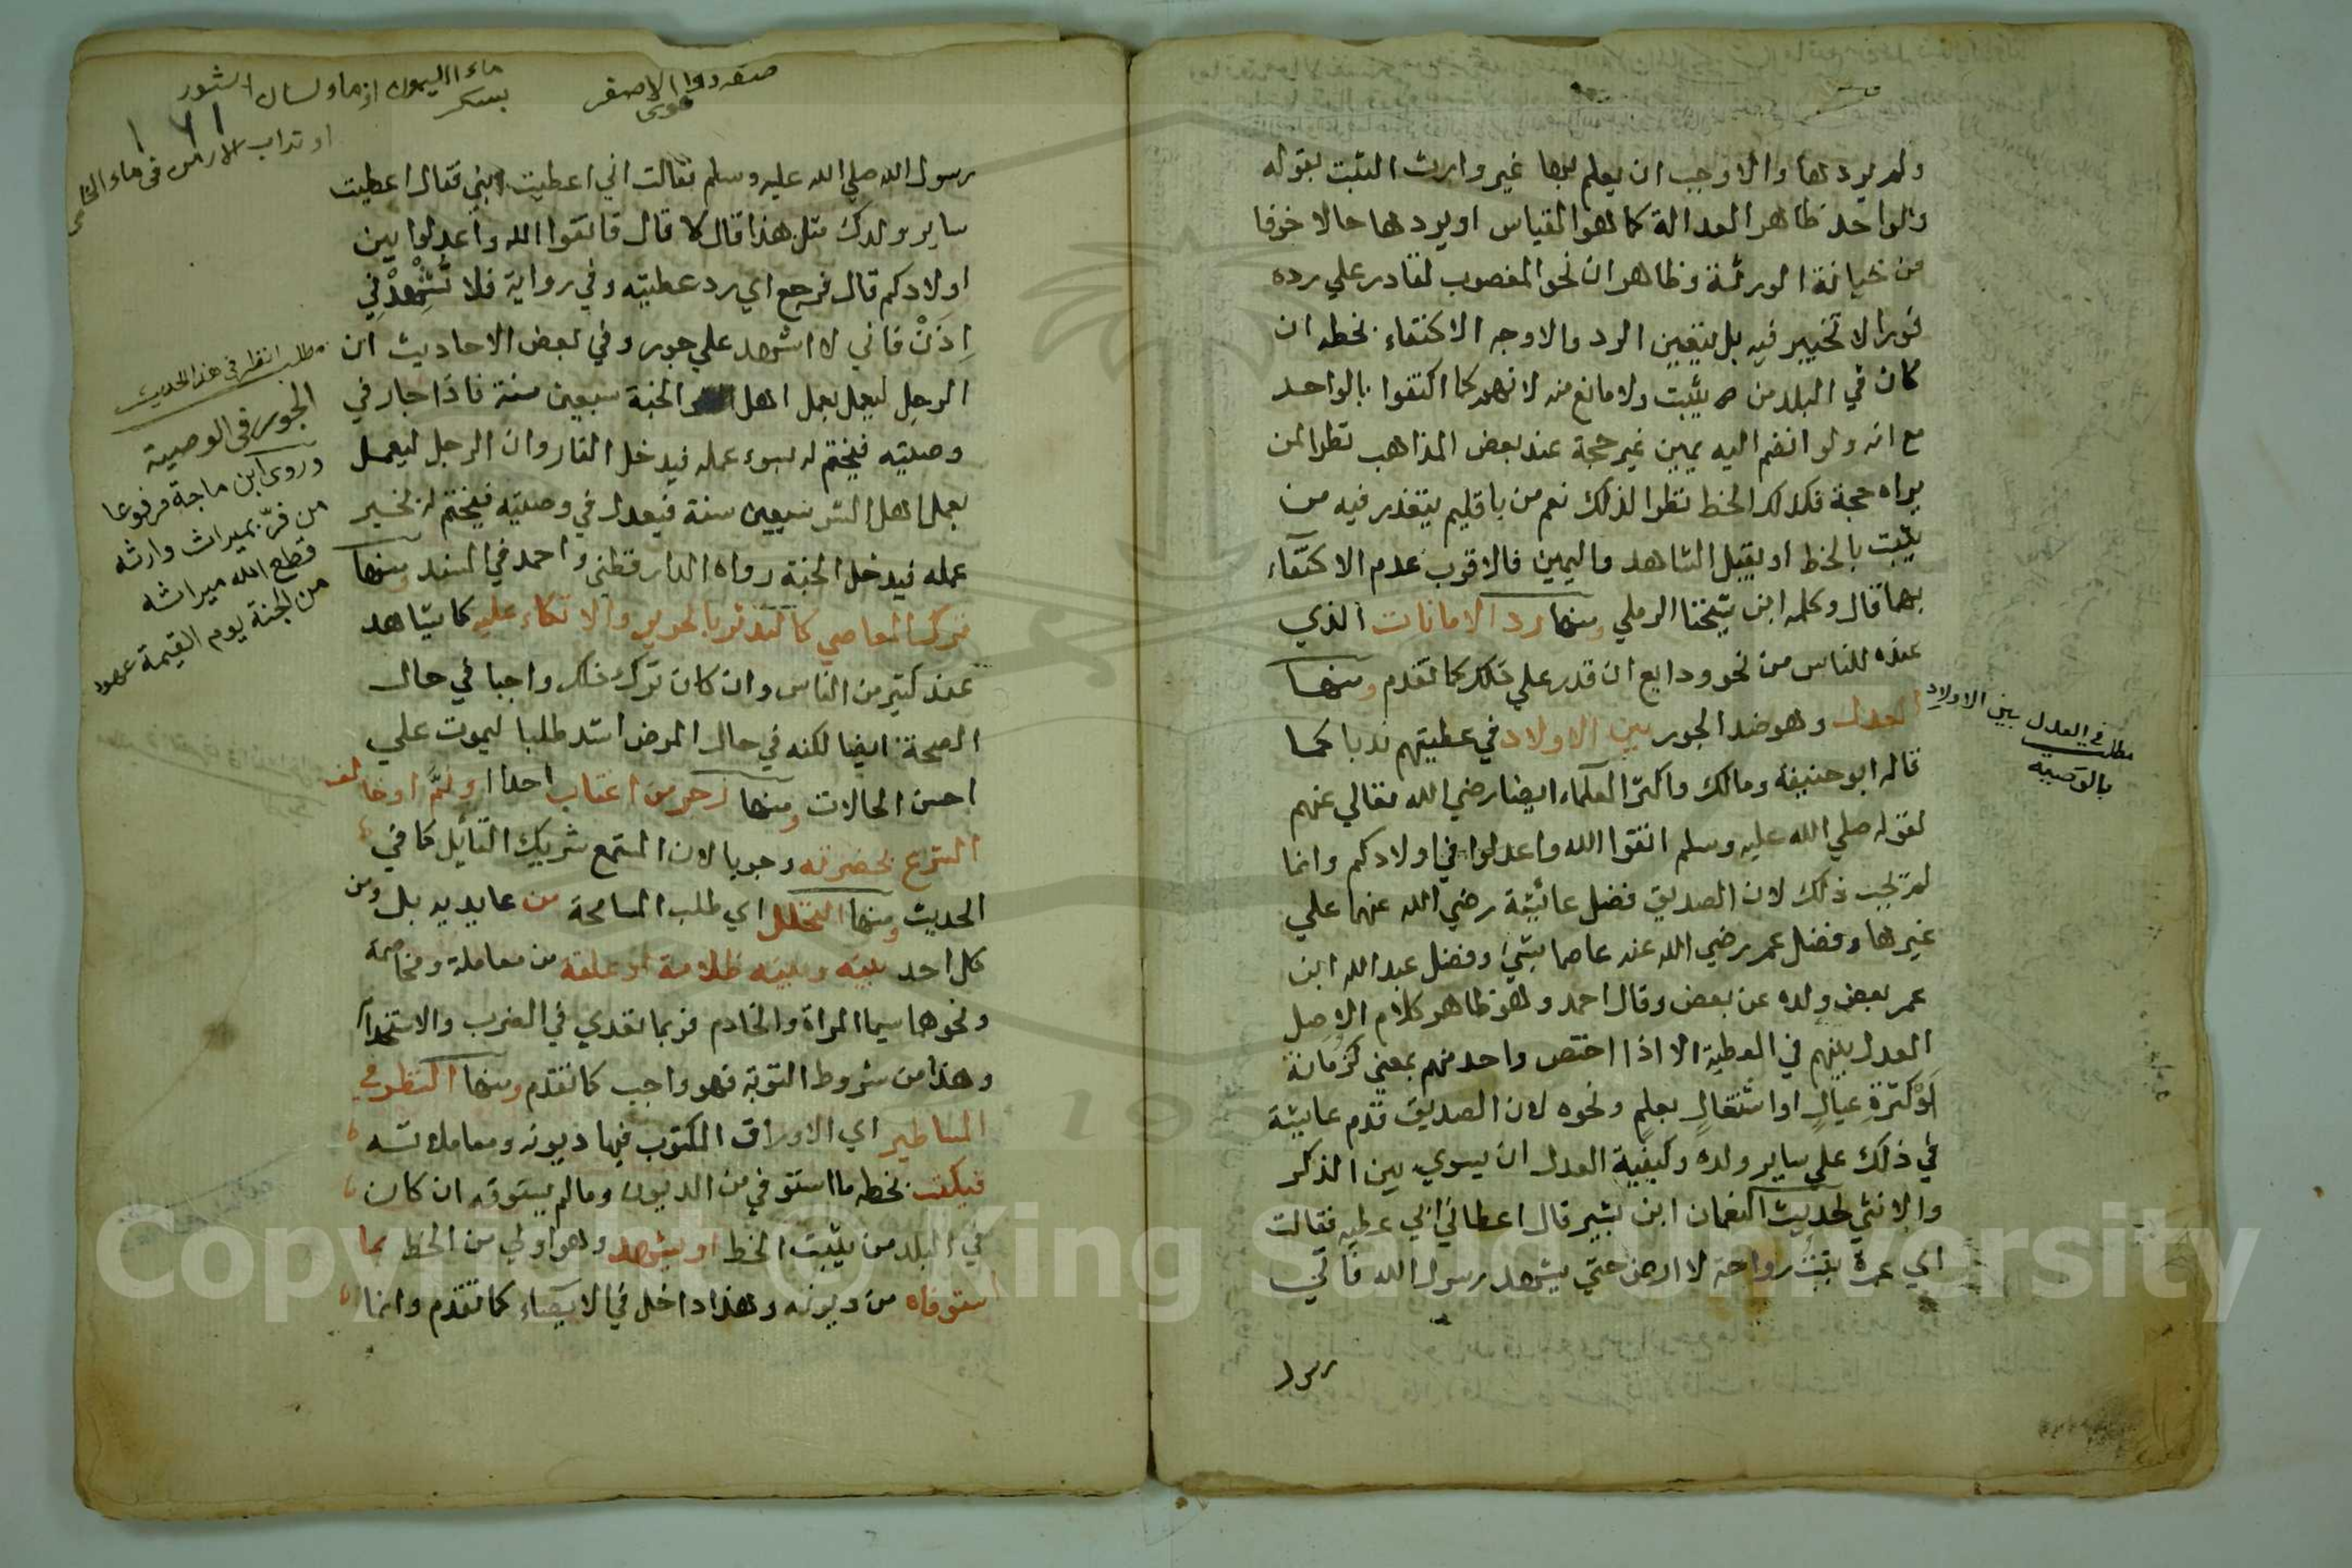 ولم يرد لها والاوجب ان يعلم بها غير وارث الثبت بقوله
والواحد ظاهر العدالة كما هو القياس او يردها حالا خوفا
من خيانة الورثة وظاهر ان نحو المغصوب لقادر علي رده
فورا لا تخيير فيه بل يتعين الرد والاوجه الاكتفاء بخطه ان
كان في البلد من يثبت ولا مانع منه لانهم كما اكتفوا بالواحد
مع انه ولو انضم اليه يمين غير حجة عند بعض المذاهب نظرا لمن
يراه حجة فكذلك الخط نظرا لذلك نعم من باقليم يتعذر فيه من
يثبت بالخط او يقبل الشاهد واليمين فالاقرب عدم الاكتفاء
بهما قال وكلمه ابن شيخنا الرملي ومنها رد الامانات الذي
عنده للناس من نحو ودايع ان قدر علي ذلك كما تقدم ومنها
العدل وهو ضد الجور بين الاولاد في عطيتهم ندبا كما
مطلب في العدل بين الاولاد
بالوصية
قاله ابو حنيفة ومالك واكثر العلماء ايضا رضي الله تعالي عنهم
لقوله صلي الله عليه وسلم اتقوا الله واعدلوا في اولادكم وانما
لم يجب ذلك لان الصديق فضل عائشة رضي الله عنهما علي
غيرها وفضل عمر رضي الله عنه عاصما بشئ وفضل عبد الله ابن
عمر بعض ولده عن بعض وقال احمد وهو ظاهر كلام الاصل
العدل بينهم في العطية الا اذا اختص واحد منهم بمعني كزمانة
او كثرة عيال او اشتغال بعلم ونحوه لان الصديق قدم عايشة
في ذلك علي ساير ولده وكيفية العدل ان يسوي بين الذكر
والانثي لحديث النعمان ابن بشير قال اعطاني ابي عطيه فقالت
امي عمرة بنت رواحة لا ارضى حتي يشهد رسول الله فاتي
رسول
صفه دوا الاصفر
قوى
ماء الليمون او ماء لسان الثور
بسكر
او تراب الارمن في ماء
رسول الله صلي الله عليه وسلم فقالت اني اعطيت ابني فقال اعطيت
ساير ولدك مثل هذا قال لا قال فاتقوا الله واعدلوا بين
اولادكم قال فرجع اي رد عطيته وفي رواية فلا تُشْهِدْنِي
اِذَنْ فاني لا اشهد علي جور وفي بعض الاحاديث ان
الرجل ليعمل بعمل اهل الجنة سبعين سنة فاذا جار في
وصيته فيختم له بسوء عمله فيدخل النار وان الرجل ليعمل
بعمل اهل الشر سبعين سنة فيعدل في وصيته فيختم له بخير
عمله فيدخل الجنة رواه الدارقطني واحمد في المسند ومنها
ترك المعاصي كالتدثر بالحرير والاتكاء عليه كما يشاهد
عند كثير من الناس وان كان ترك ذلك واجبا في حال
الصحة ايضا لكنه في حال المرض اشد طلبا ليموت علي
احسن الحالات ومنها زجر من اغتاب احدا او نمّ او خالف
الشرع بحضرته وجوبا لان المستمع شريك القائل كما في
الحديث ومنها التحلل اي طلب المسامحة من عايديه بل ومن
كل احد بينه وبينه ظلامة او علقة من معاملة ومخاصمة
ونحوها سيما المراة والخادم فربما تعدي في الضرب والاستخدام
وهذا من شروط التوبة فهو واجب كما تقدم ومنها النظر في
المساطير اي الاوراق المكتوب فيها ديونه ومعاملاته
فيكتب بخطه ما استوفي من الديون وما لم يستوفه ان كان
في البلد من يثبت الخط او يشهد وهو اولي من الخط بما
استوفاه من ديونه وهذا داخل في الايصاء كما تقدم وانما
مطلب انظر في هذا الحديث
الجور في الوصية
وروى ابن ماجة مرفوعا
من فرّ بميراث وارثه
قطع الله ميراثه
من الجنة يوم القيمة
Copyright © King Saud University